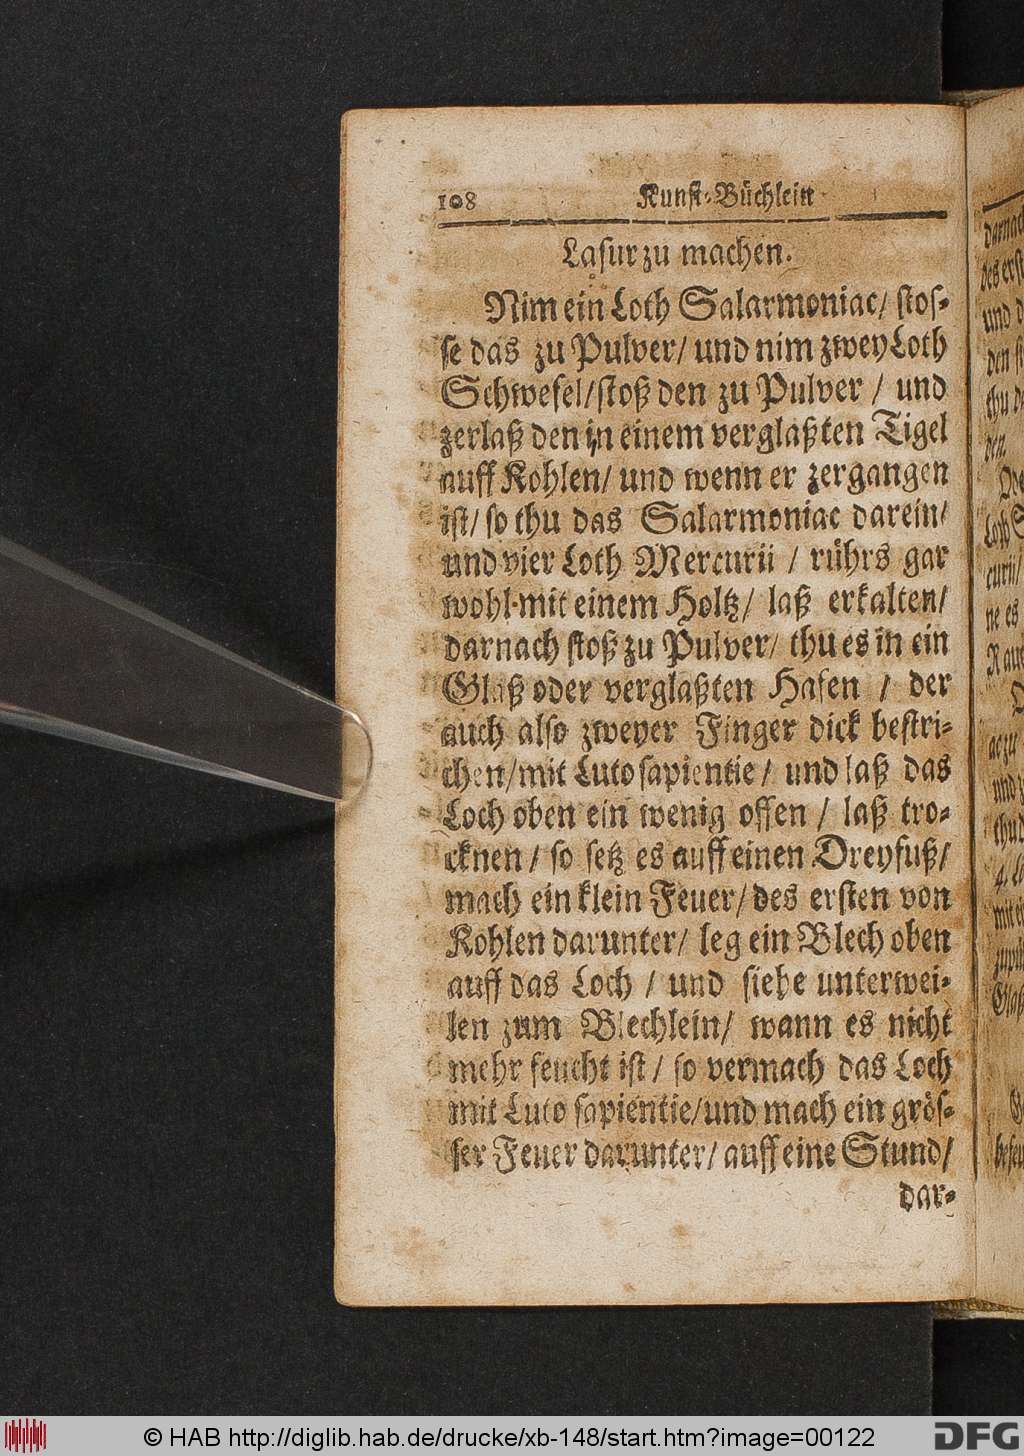 108 Kunst-Büchlein
Lasur zu machen.
Nim ein Loth Salarmoniac/ stos-
se das zu Pulver/ und nim zwey Loth
Schwefel/stoß den zu Pulver / und
zerlaß den in einem verglaßten Tigel
auff Kohlen/ und wenn er zergangen
ist/ so thu das Salarmoniac darein/
und vier Loth Mercurii / rührs gar
wohl mit einem Holtz/ laß erkalten/
darnach stoß zu Pulver/ thu es in ein
Glaß oder verglaßten Hafen / der
auch also zweyer Finger dick bestri-
chen/mit Luto sapientie/ und laß das
Loch oben ein wenig offen / laß tro-
cknen / so setz es auff einen Dreyfuß/
mach ein klein Feuer/ des ersten von
Kohlen darunter/ leg ein Blech oben
auff das Loch / und siehe unterwei-
len zum Blechlein/ wann es nicht
mehr feucht ist / so vermach das Loch
mit Luto sapientie/und mach ein grös-
ser Feuer darunter/ auff eine Stund/
dar-
© HAB http://diglib.hab.de/drucke/xb-148/start.htm?image=00122
DFG